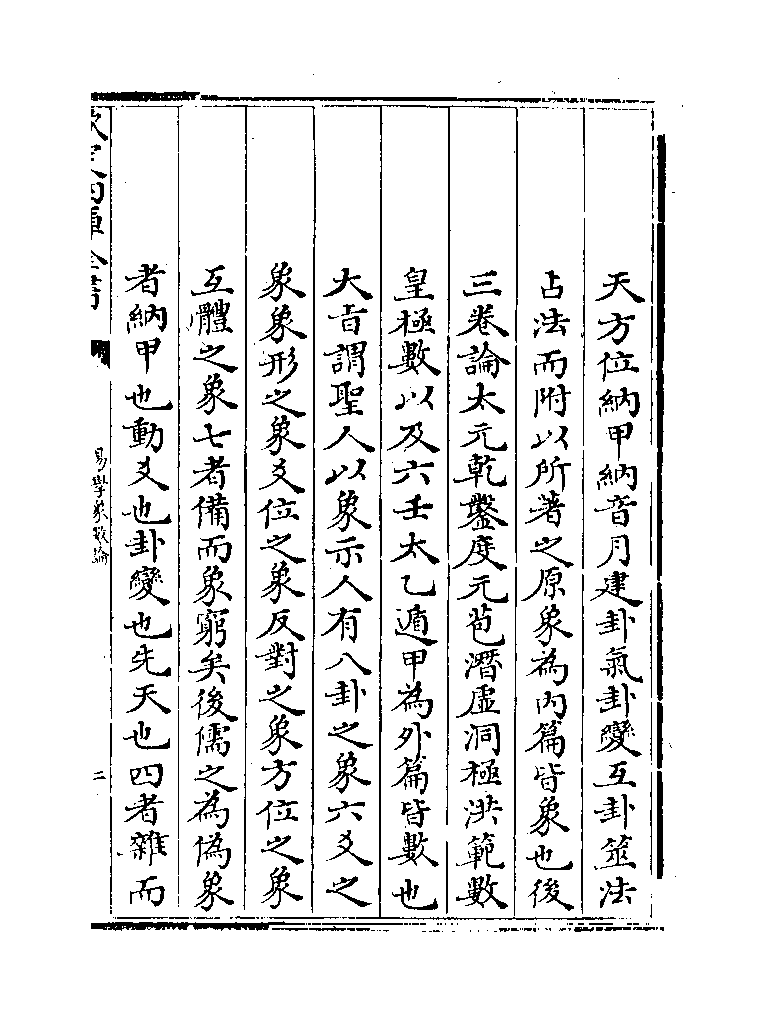 天方位納甲納音月建卦氣卦變互卦筮法
占法而附以所著之原象為内篇皆象也後
三卷論太元乾鑿度元苞潛虛洞極洪範數
皇極數以及六壬太乙遁甲為外篇皆數也
大旨謂聖人以象示人有八卦之象六爻之
象象形之象爻位之象反對之象方位之象
互體之象七者備而象窮矣後儒之為偽象
者納甲也動爻也卦變也先天也四者雜而
欽定四庫全書
易學象數論
二